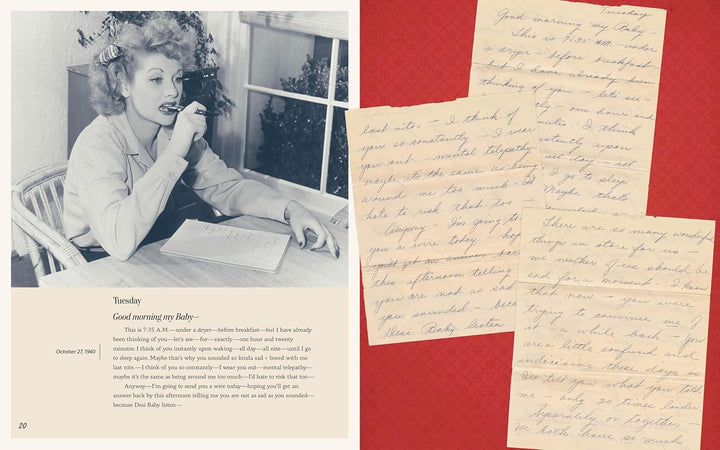 Tuesday
Good morning my Baby—
This is 7:35 A.M.—under a dryer—before breakfast—but I have already
been thinking of you—let's see—for—exactly—one hour and twenty
minutes. I think of you instantly upon waking—all day—all nite—until I go
to sleep again. Maybe that's why you sounded so kinda sad + bored with me
last nite.—I think of you so constantly—I wear you out—mental telepathy—
maybe it's the same as being around me too much—I'd hate to risk that too—
Anyway—I'm going to send you a wire today—hoping you'll get an
answer back by this afternoon telling me you are not as sad as you sounded—
because Desi Baby listen—
October 27, 1940
20
Tuesday
Good morning my Baby—
This is 7:35 A.M.—under
a dryer—before breakfast
but I have already been
thinking of you—let's see—
one hour and
I think
upon
all day—all
I go to sleep
Maybe that's
last nite.—I think of
you so constantly—I wear
you out—mental telepathy
maybe it's the same as being
around me too much—I'd
hate to risk that too—
Anyway—I'm going to
you a wire today—
you'll get an answer
this afternoon telling
you are not as sad
you sounded—
Desi Baby listen
There are so many wonderful
things in store for us—
neither of us should be
sad for a moment—I know
that now—you were
trying to convince me of
it a while back—you
are a little confused and
indecisive these days so
I'll tell you what you told
me—only 20 times louder
Separately or together—
We both have so much